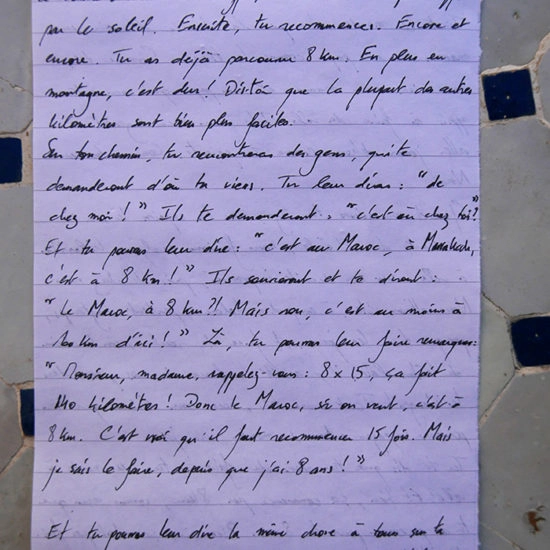 par le soleil. Ensuite, tu recommences. Encore et
encore. Tu as déjà parcouru 8 km. En plus en
montagne, c'est dur ! Dis-toi que la plupart des autres
kilomètres sont bien plus faciles.
Sur ton chemin, tu rencontreras des gens, qui te
demanderont d'où tu viens. Tu leur diras : "de
chez moi ! " Ils te demanderont : "c'est où chez toi?"
Et tu pourras leur dire : "c'est au Maroc, à Marrakech,
c'est à 8 km ! " Ils souriront et te diront :
"Le Maroc, à 8 km ?! Mais non, c'est au moins à
100 km d'ici ! " Là, tu pourras leur faire remarquer :
"Monsieur, madame, rappelez-vous : 8 x 15, ça fait
140 kilomètres ! Donc le Maroc, si on veut, c'est à
8 km. C'est vrai qu'il faut recommencer 15 fois. Mais
je sais le faire, depuis que j'ai 8 ans ! "
Et tu pourras leur dire la même chose à tous sur ta